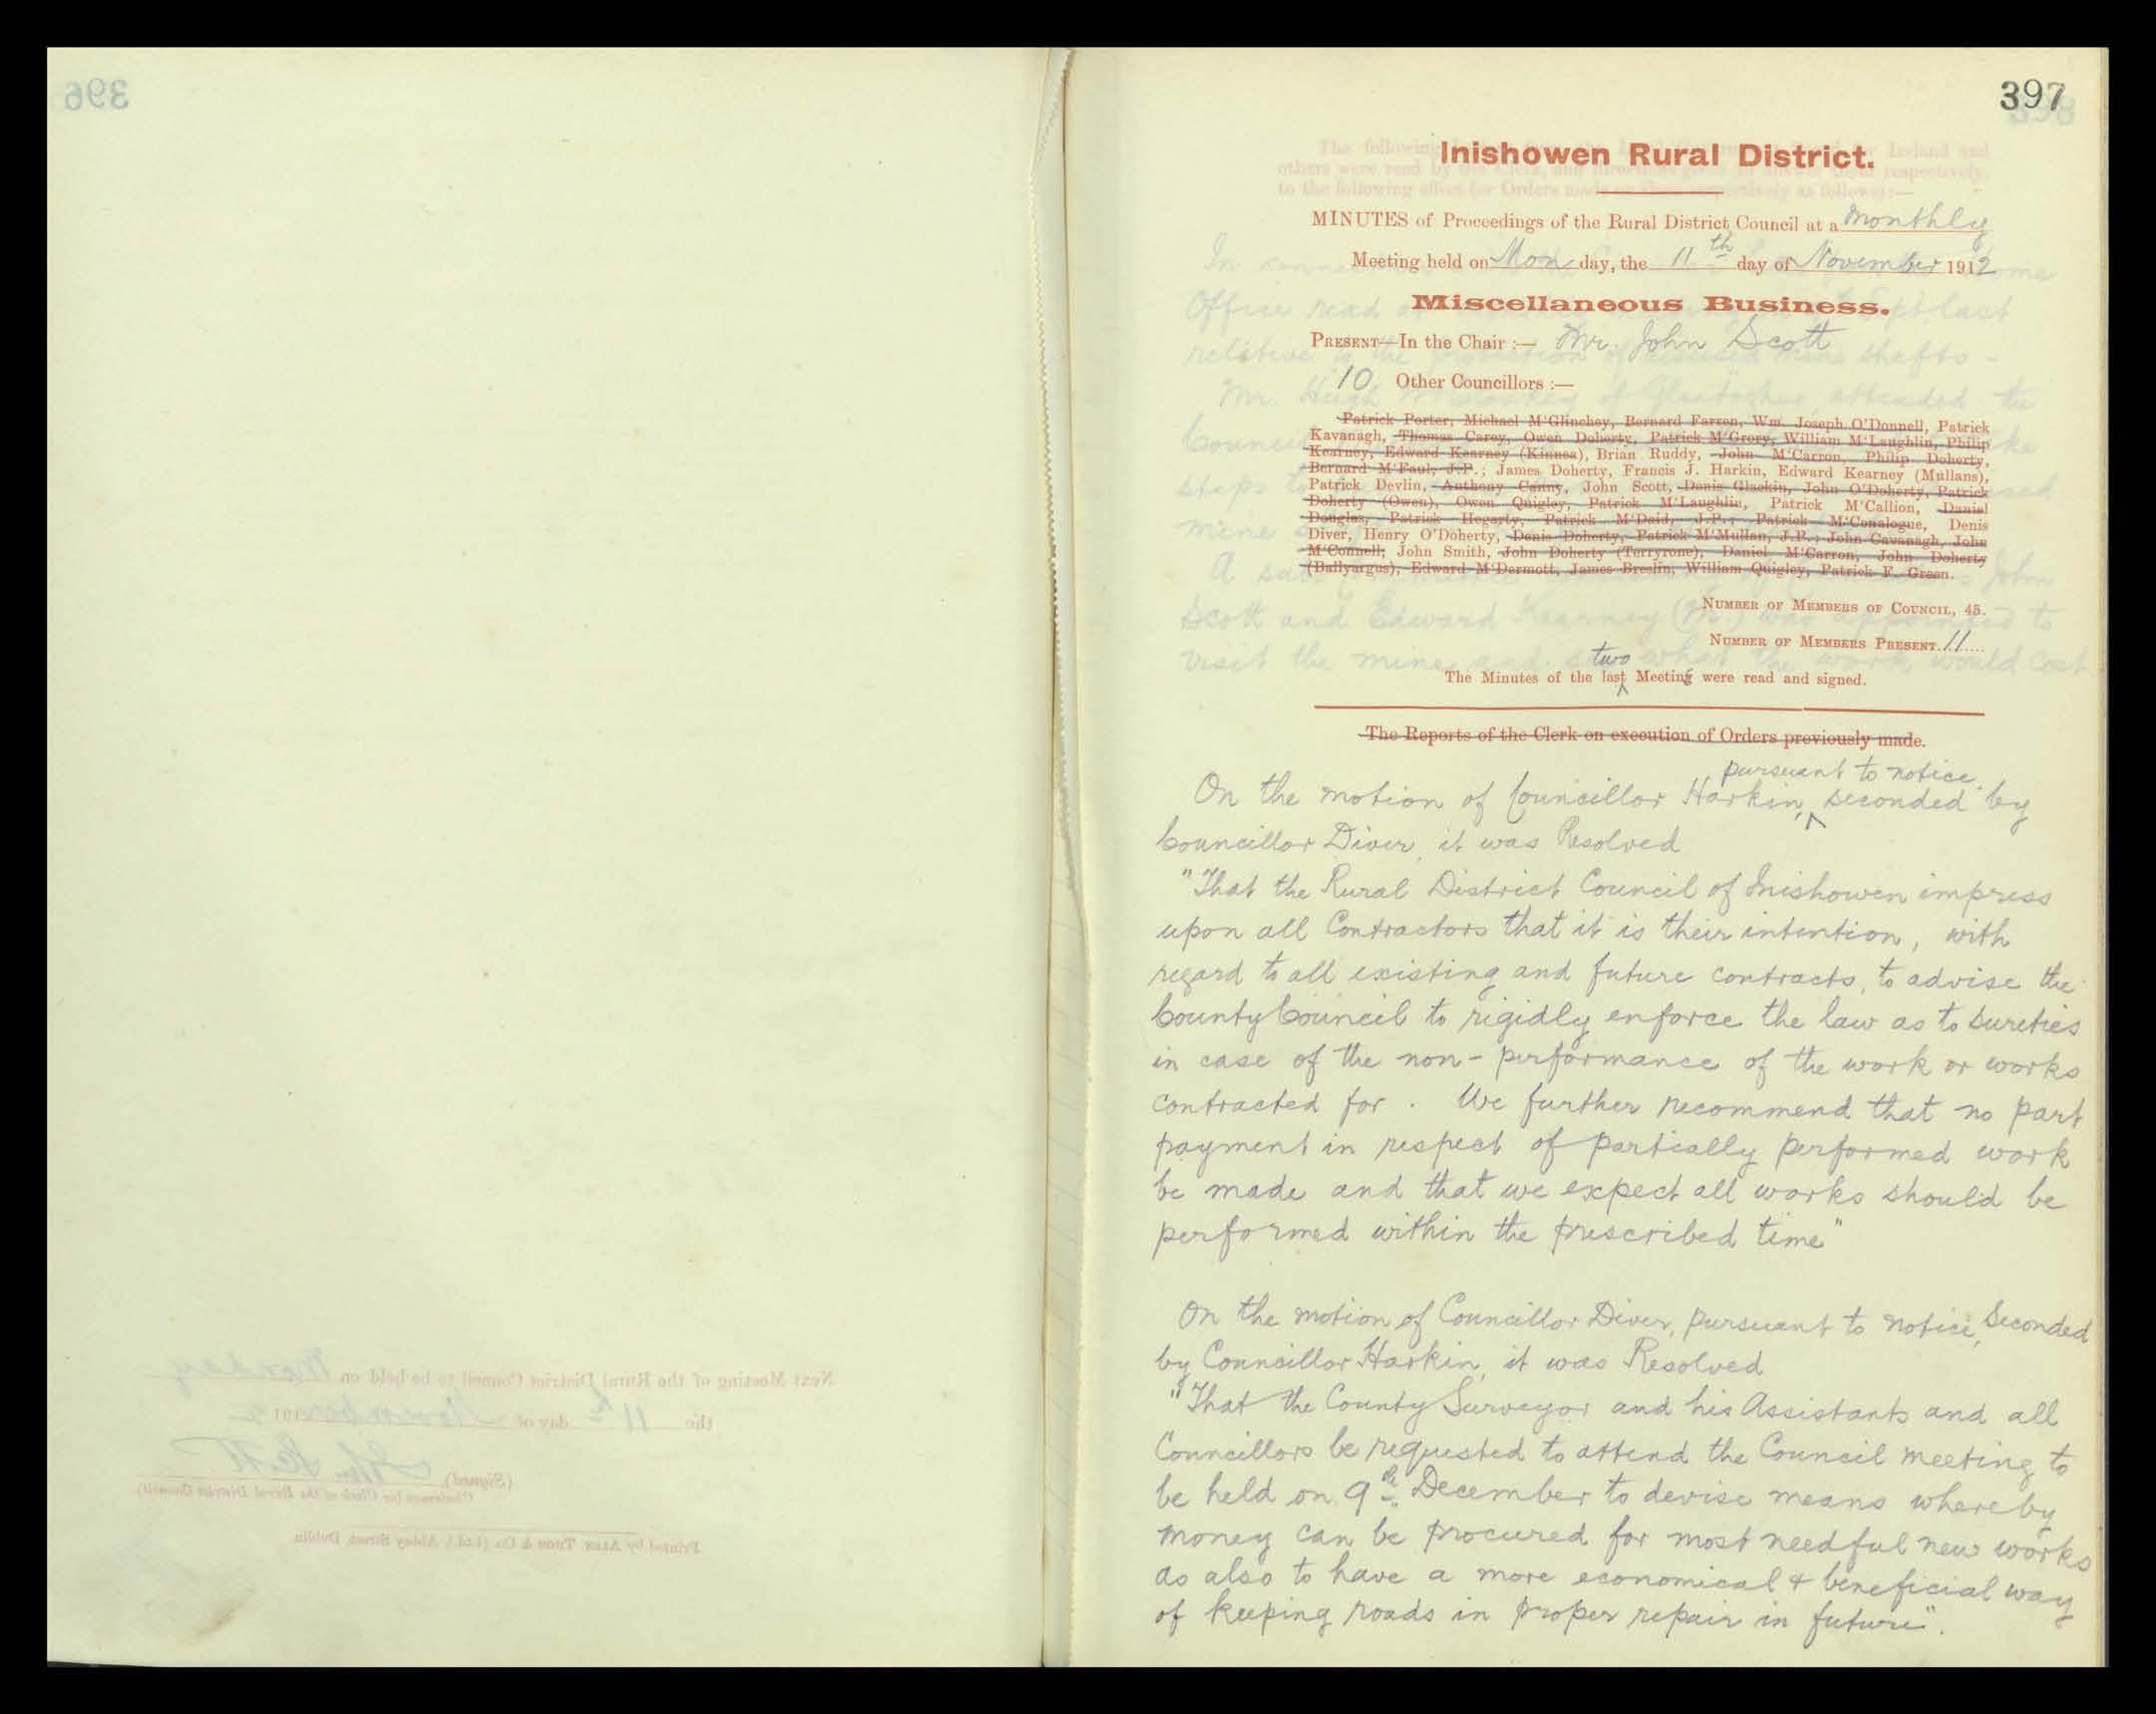 397
Inishowen Rural District.
MINUTES of Proceedings of the Rural District Council at a Monthly
Meeting held on Monday, the 11th day of November 1912
Miscellaneous Business.
PRESENT—In the Chair :— Mr. John Scott
10 Other Councillors :—
Patrick Porter, Michael M'Glinchey, Bernard Farren, Wm. Joseph O'Donnell, Patrick
Kavanagh, Thomas Carey, Owen Doherty, Patrick M'Grory, William M'Laughlin, Philip
Kearney, Edward Kearney (Kinnea), Brian Ruddy, John M'Carron, Philip Doherty,
Bernard M'Faul, J.P.; James Doherty, Francis J. Harkin, Edward Kearney (Mullans),
Patrick Devlin, Anthony Canny, John Scott, Denis Glackin, John O'Doherty, Patrick
Doherty (Owen), Owen Quigley, Patrick M'Laughlin, Patrick M'Callion, Daniel
Douglas, Patrick Hegarty, Patrick M'Daid, J.P.; Patrick M'Conalogue, Denis
Diver, Henry O'Doherty, Denis Doherty, Patrick M'Mullan, J.P.; John Cavanagh, John
M'Connell; John Smith, John Doherty (Terryrone), Daniel M'Carron, John Doherty
(Ballyargus), Edward M'Dermott, James Breslin, William Quigley, Patrick F. Green.
NUMBER OF MEMBERS OF COUNCIL, 45.
NUMBER OF MEMBERS PRESENT 11
two
The Minutes of the last Meetings were read and signed.
The Reports of the Clerk on execution of Orders previously made.
pursuant to notice
On the motion of Councillor Harkin, seconded by
Councillor Diver, it was Resolved
"That the Rural District Council of Inishowen impress
upon all Contractors that it is their intention, with
regard to all existing and future contracts, to advise the
County Council to rigidly enforce the law as to sureties
in case of the non-performance of the work or works
contracted for. We further recommend that no part
payment in respect of partically performed work
be made and that we expect all works should be
performed within the prescribed time"
On the motion of Councillor Diver, pursuant to notice, Seconded
by Councillor Harkin, it was Resolved
"That the County Surveyor and his Assistants and all
Councillors be requested to attend the Council meeting to
be held on 9th December to devise means whereby
money can be procured for most needful new works
as also to have a more economical & beneficial way
of keeping roads in proper repair in future".